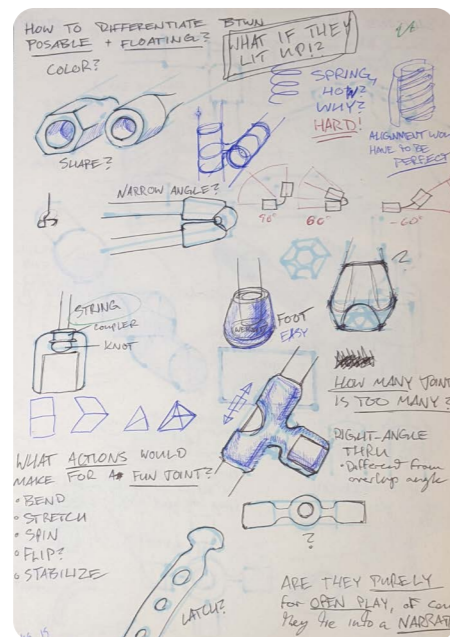 HOW TO DIFFERENTIATE BTWN
POSABLE + FLOATING?
WHAT IF THEY
LIT UP!?
COLOR?
SPRING,
HOW?
WHY?
HARD!
ALIGNMENT WOU
HAVE TO BE
PERFECT
SHAPE?
NARROW ANGLE?
90°
60°
-60°
STRING
COUPLER
KNOT
FOOT
EASY
?
HOW MANY JOINT
IS TOO MANY?
RIGHT-ANGLE
THRU
• Different from
overlap angle
WHAT ACTIONS WOULD
MAKE FOR A FUN JOINT?
• BEND
• STRETCH
• SPIN
• FLIP?
• STABILIZE
?
LATCH?
ARE THEY PURELY
for OPEN PLAY, or
they tie into a NARRAT